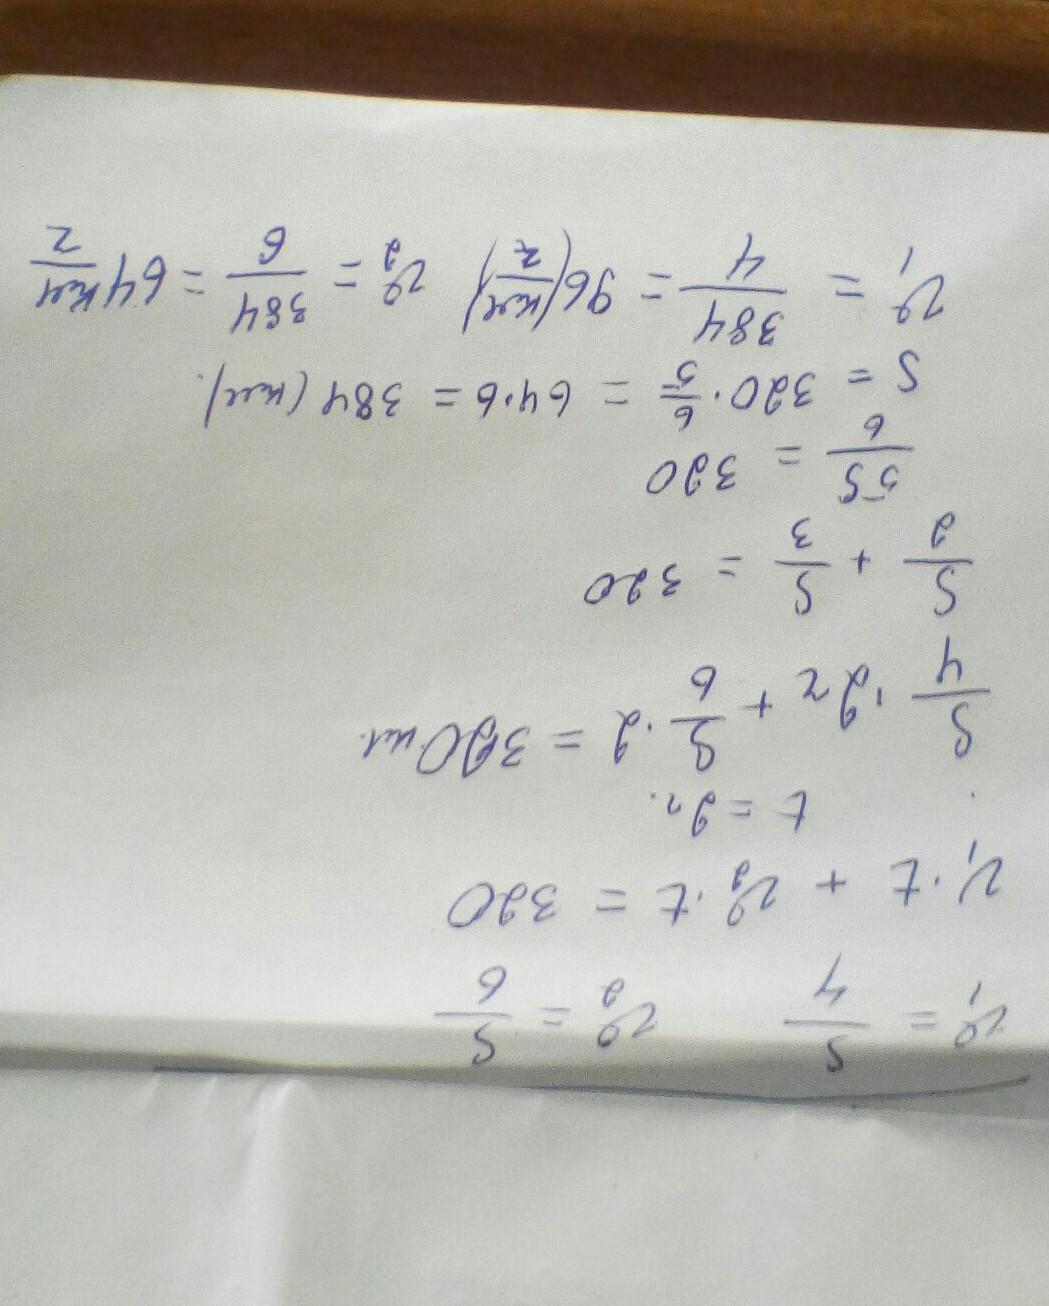 v₁ = S/4    v₂ = S/6
v₁·t + v₂·t = 320
t = 2ч.
S/4 · 2ч + S/6 · 2 = 320 км.
S/2 + S/3 = 320
5S/6 = 320
S = 320 · 6/5 = 64·6 = 384 (км).
v₁ = 384/4 = 96 (км/ч)  v₂ = 384/6 = 64 км/ч